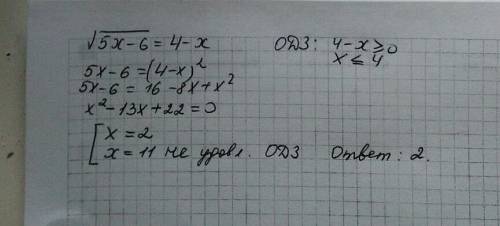 √5x-6 = 4-x ОДЗ: 4-x ≥ 0
x ≤ 4
5x-6 = (4-x)²
5x-6 = 16 -8x+x²
x²-13x+22=0
[x = 2
x = 11 не удовл. ОДЗ Ответ: 2.